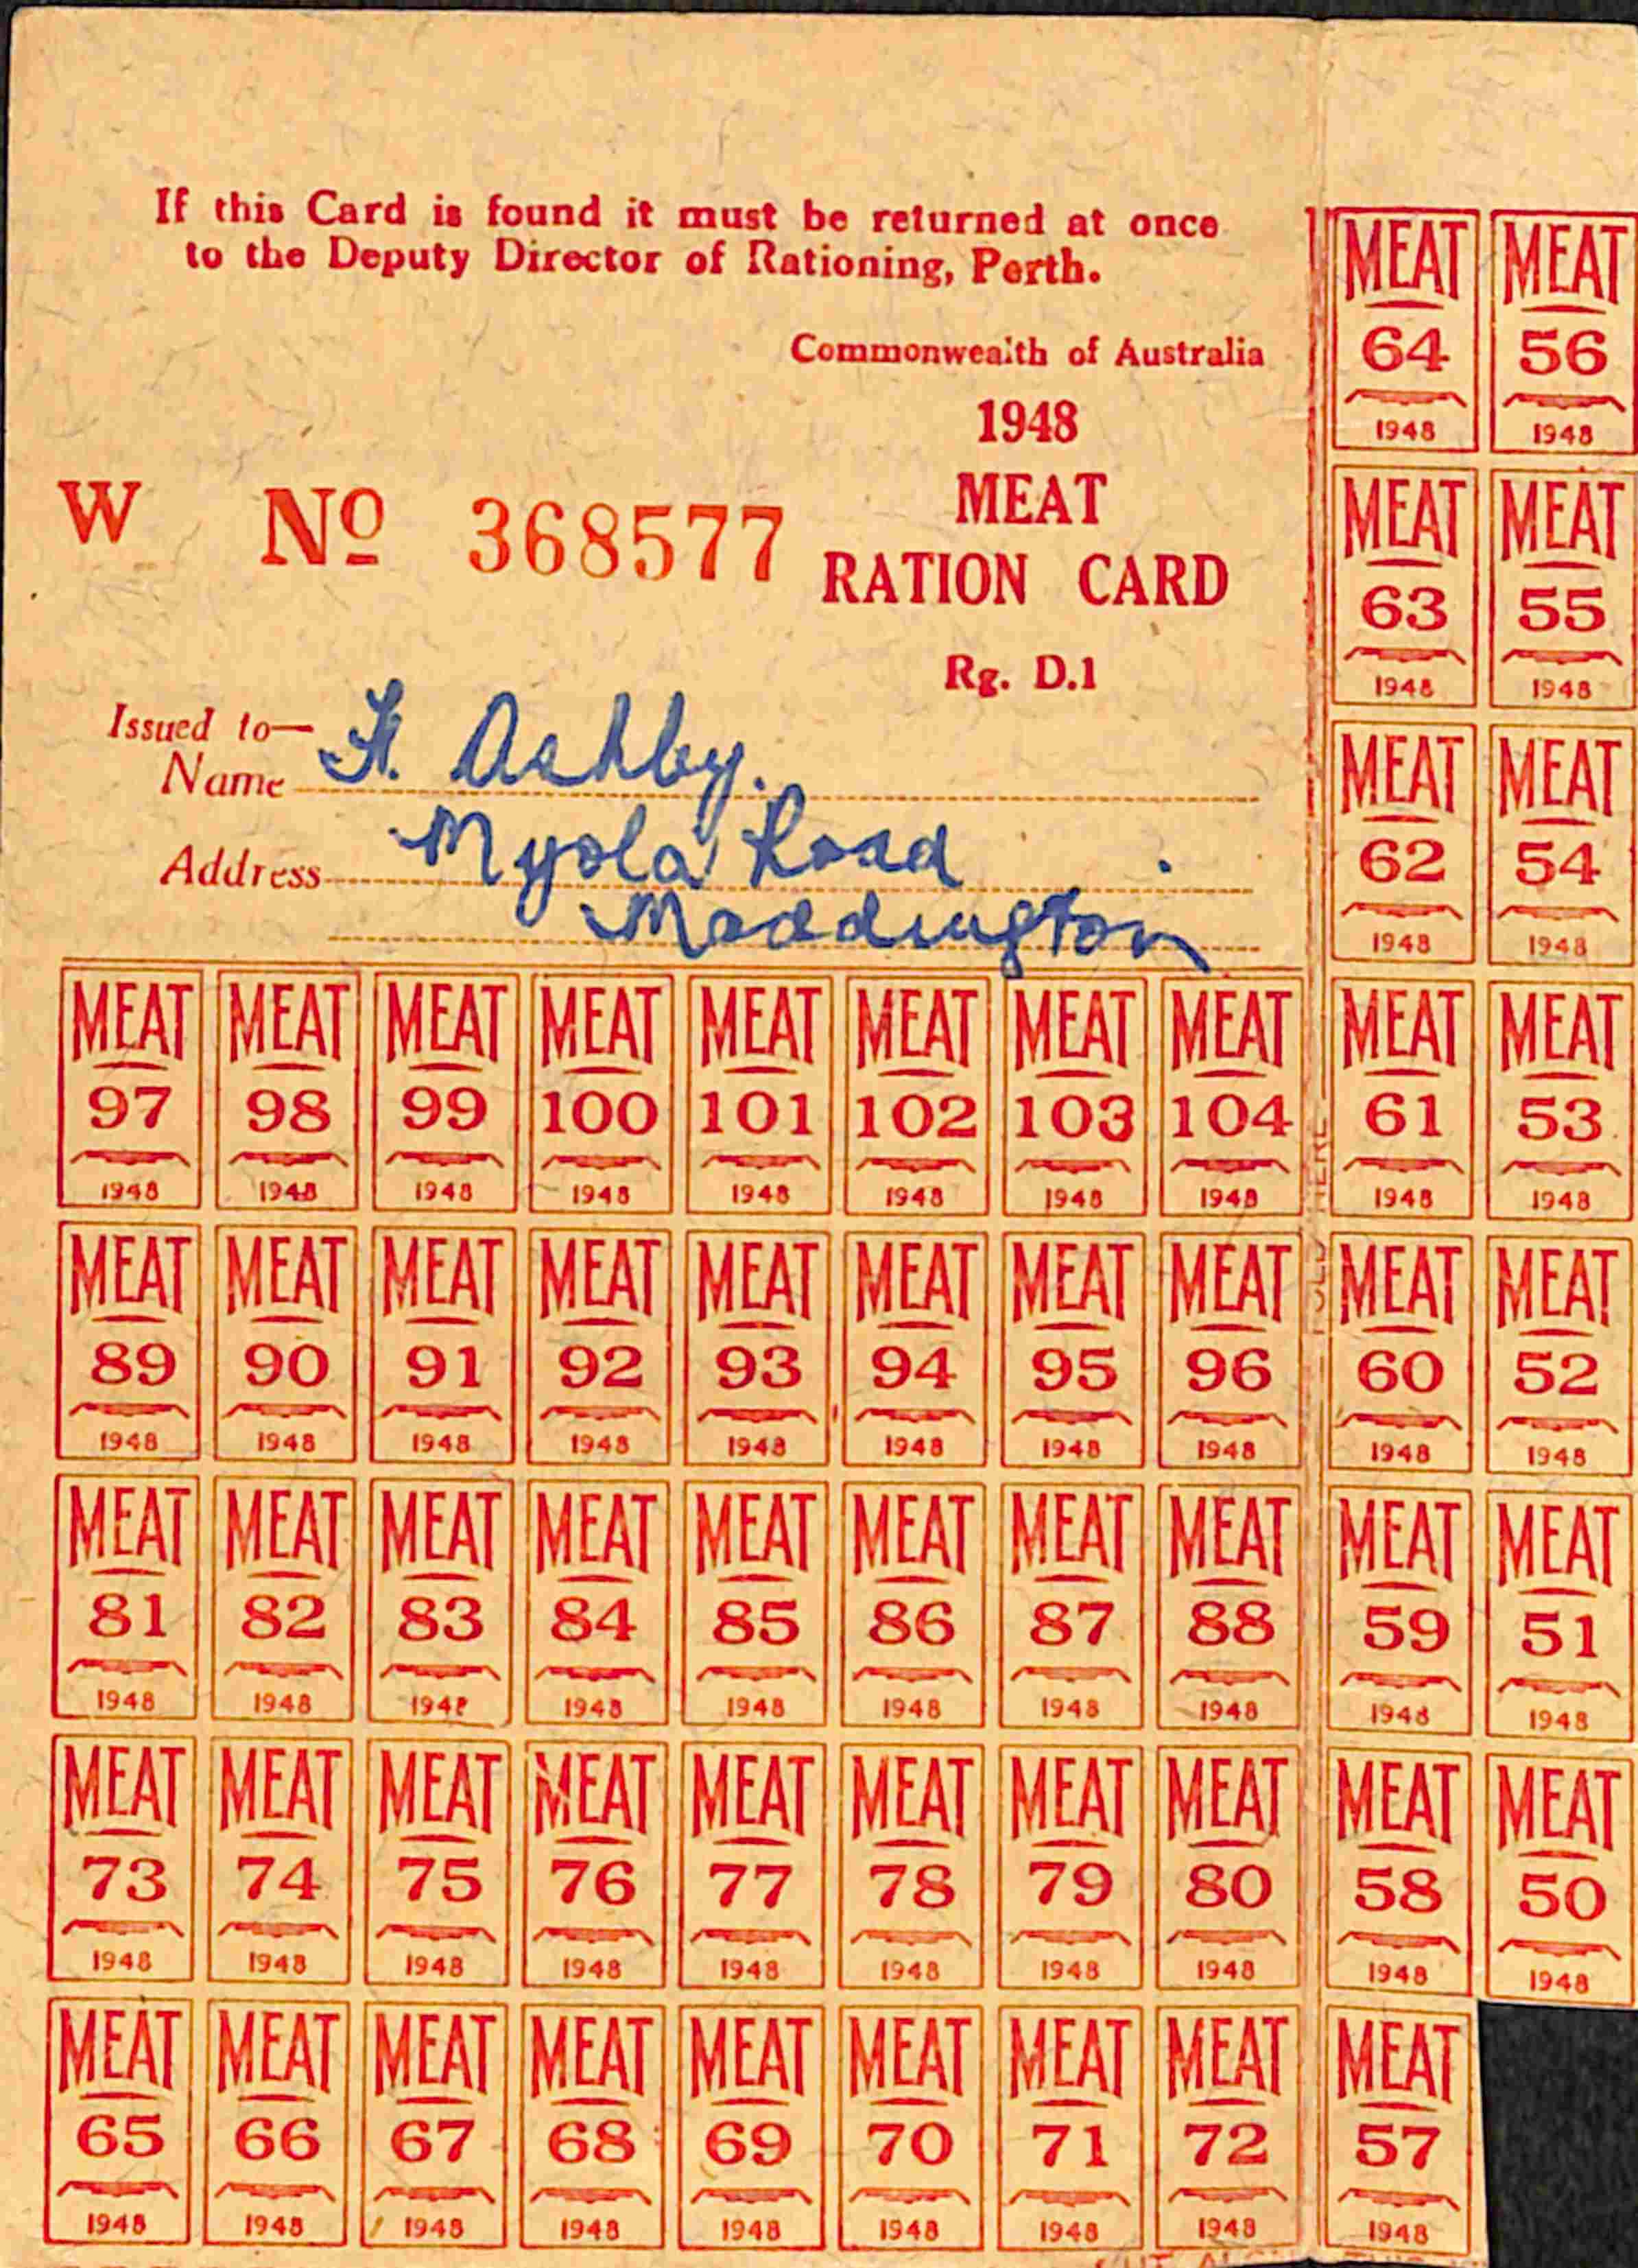 If this Card is found it must be returned at once
to the Deputy Director of Rationing, Perth.
Commonwealth of Australia
1948
MEAT
RATION CARD
Rg. D.1
W No 368577
Issued to—
Name Ashby.
Address Myola Road
Maddington
MEAT MEAT
64 56
1948 1948
MEAT MEAT
63 55
1948 1948
MEAT MEAT
62 54
1948 1948
MEAT MEAT MEAT MEAT MEAT MEAT MEAT MEAT MEAT MEAT
97 98 99 100 101 102 103 104 61 53
1948 1948 1948 1948 1948 1948 1948 1948 1948 1948
MEAT MEAT MEAT MEAT MEAT MEAT MEAT MEAT MEAT MEAT
89 90 91 92 93 94 95 96 60 52
1948 1948 1948 1948 1948 1948 1948 1948 1948 1948
MEAT MEAT MEAT MEAT MEAT MEAT MEAT MEAT MEAT MEAT
81 82 83 84 85 86 87 88 59 51
1948 1948 1948 1948 1948 1948 1948 1948 1948 1948
MEAT MEAT MEAT MEAT MEAT MEAT MEAT MEAT MEAT MEAT
73 74 75 76 77 78 79 80 58 50
1948 1948 1948 1948 1948 1948 1948 1948 1948 1948
MEAT MEAT MEAT MEAT MEAT MEAT MEAT MEAT MEAT
65 66 67 68 69 70 71 72 57
1948 1948 1948 1948 1948 1948 1948 1948 1948